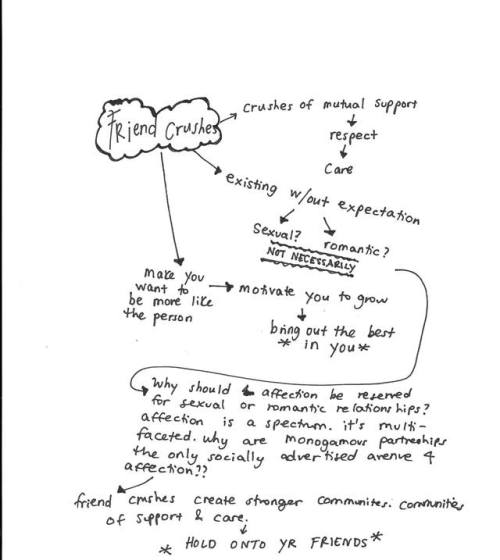 Friend Crushes
crushes of mutual support
respect
care
existing w/out expectation
sexual?
romantic?
NOT NECESSARILY
make you
want to
be more like
the person
motivate you to grow
bring out the best
* in you *
Why should affection be reserved
for sexual or romantic relationships?
affection is a spectrum. it's multi-
faceted. why are monogamous partnerships
the only socially advertised avenue 4
affection??
friend crushes create stronger communites. communities
of support & care.
* HOLD ONTO YR FRIENDS *